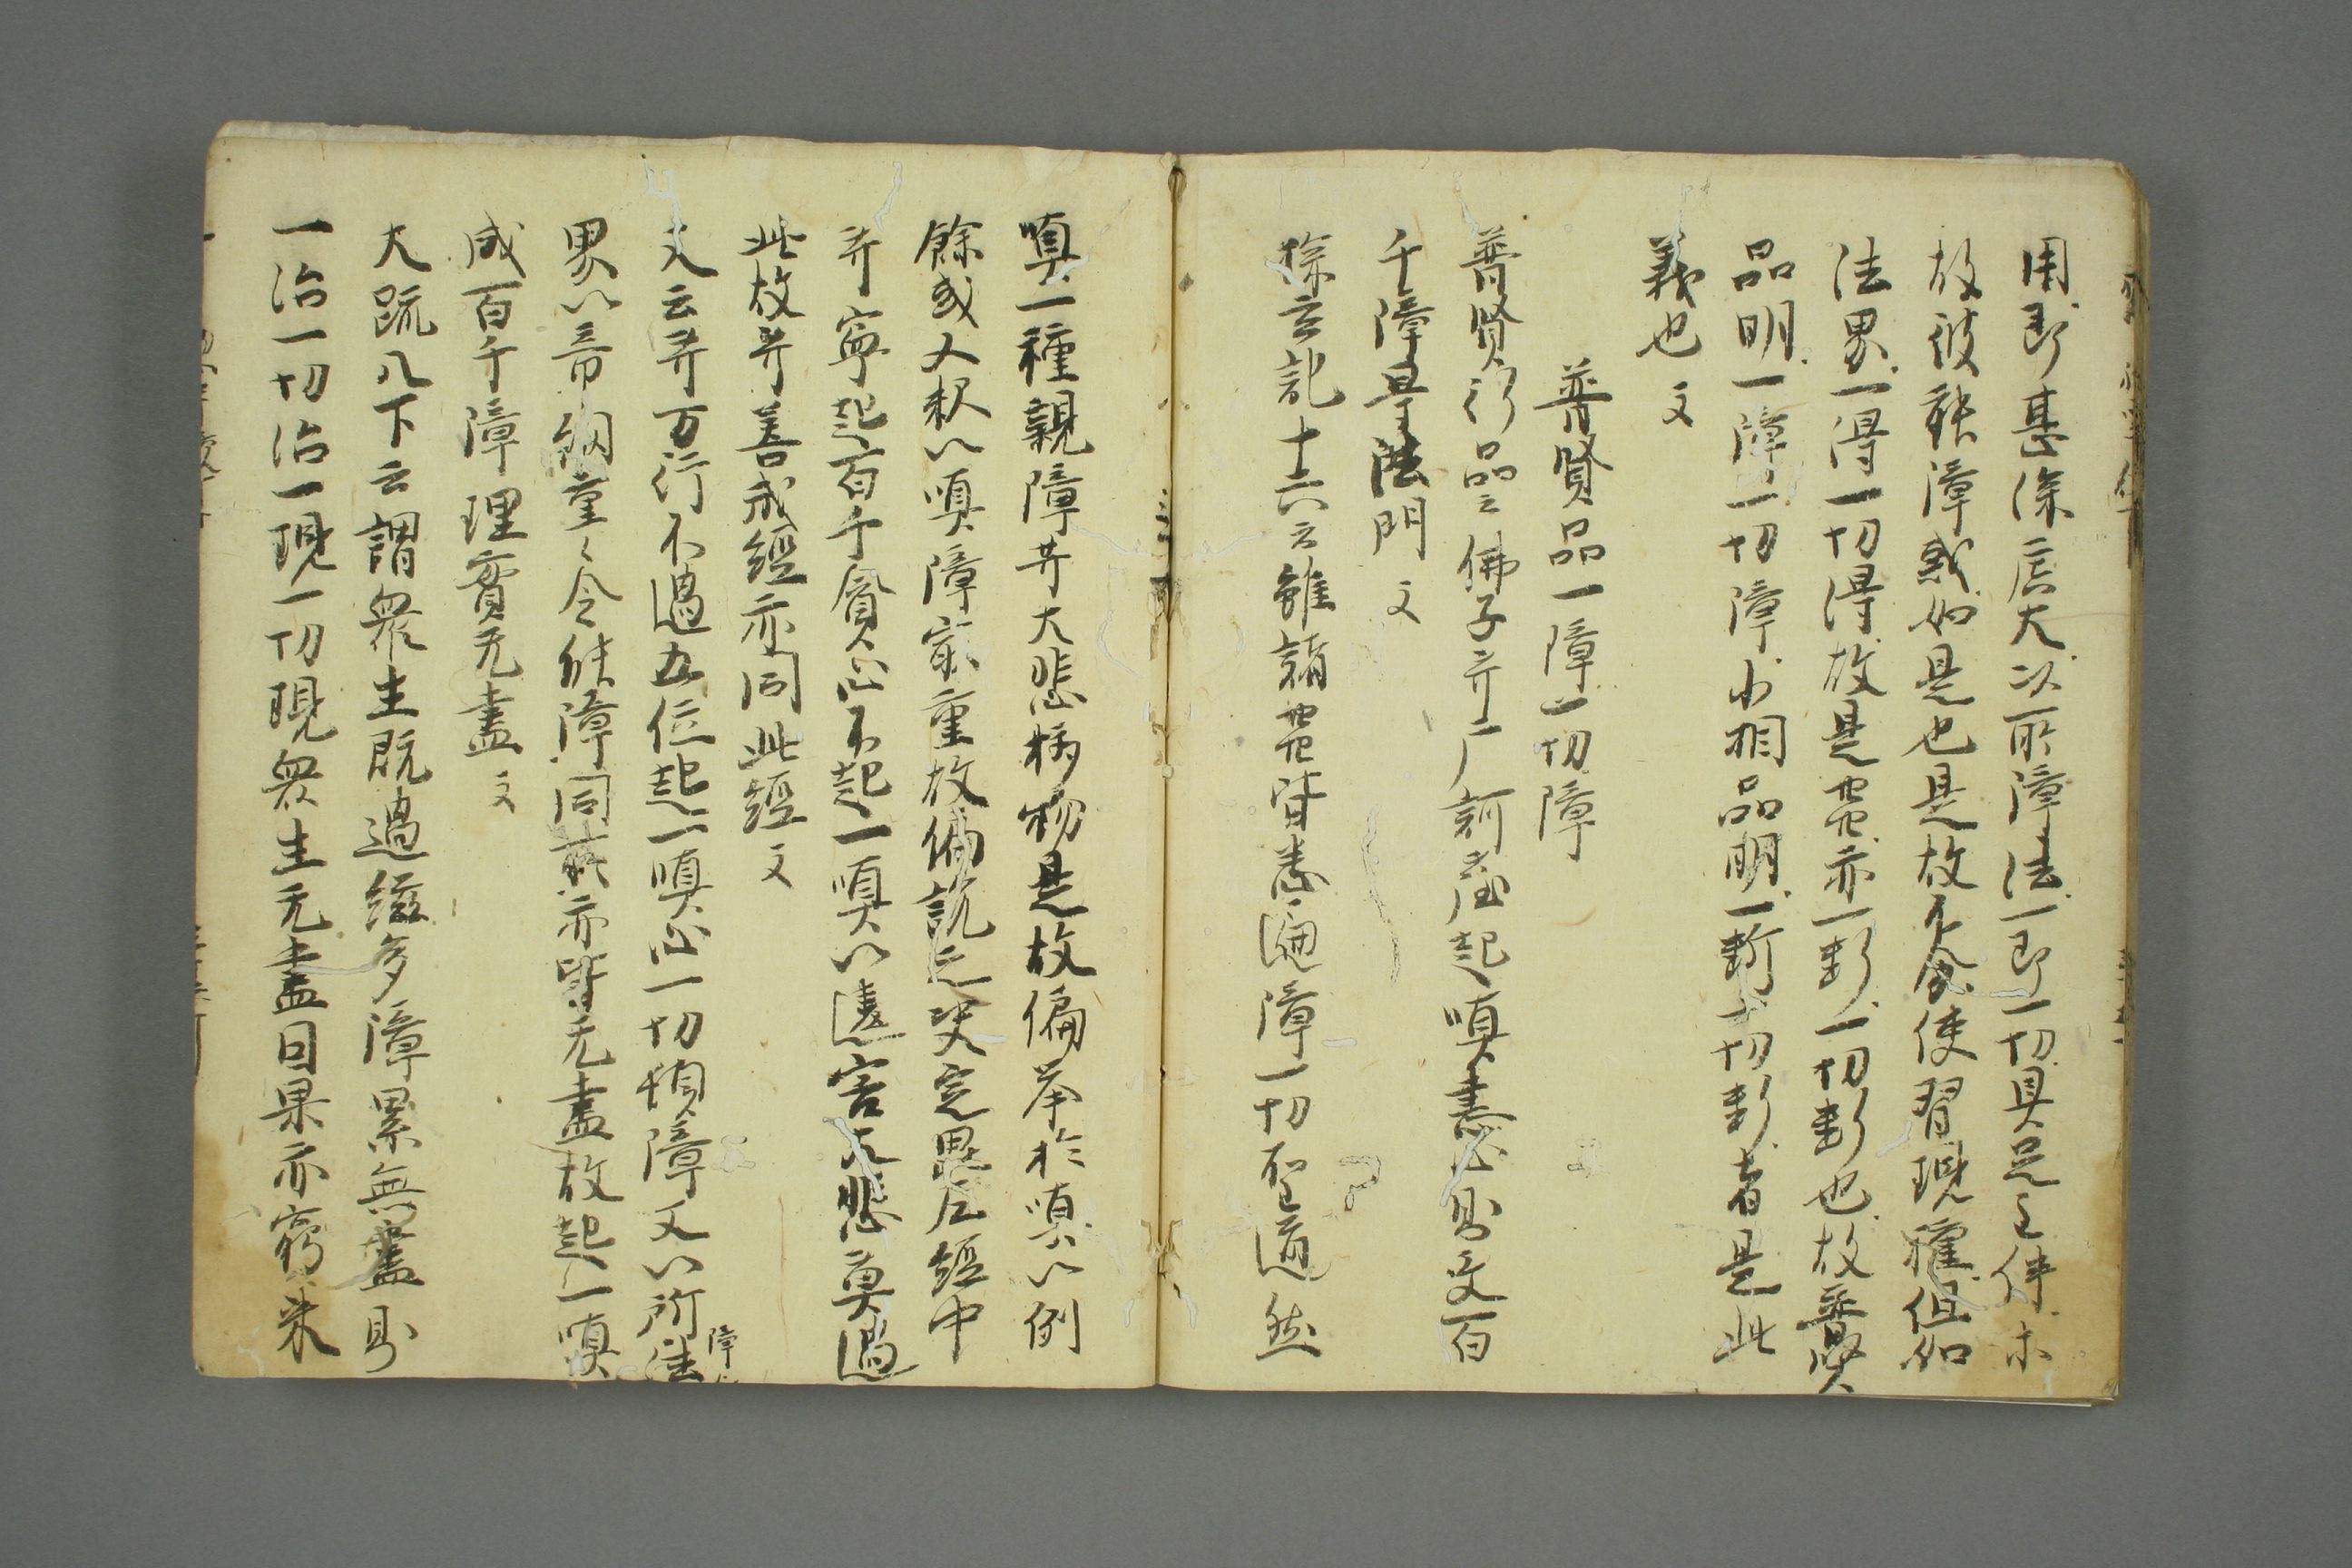 用即甚深廣大以所障法一即一切具足主伴等
故彼能障惑如是也是故不分使習現種但如
法界一得一切得故是𦰡亦一斷一切斷也故普賢
品明一障一切障小相品明一斷一切斷者是此
義也文
普賢品一障一切障
普賢行品云佛子𦬇摩訶𦬇起嗔恚心則受百
千障㝵法門文
探玄記十六云雖諸𦰡皆悉遍障一切聖道然
嗔一種親障𦬇大悲摂物是故偏举於嗔以例
餘或又釈以嗔障最重故偏説之決定毘尼經中
𦬇寧起百千貪心不起一嗔以違害大悲莫過
此故𦬇善戒經亦同此經文
又云𦬇万行不過五位起一嗔心一切頓障又以所障法
界以帝網重々令能障同彼亦皆无盡故起一嗔
成百千障理實无盡文
大䟽八下云謂衆生既過緣多障累無盡則
一治一切治一現一切現衆生无盡因果亦窮未